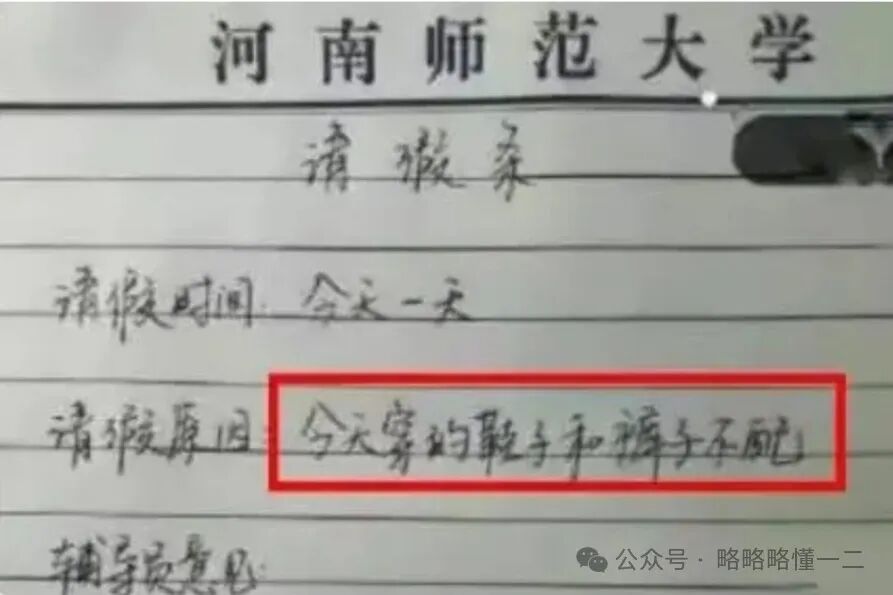 河南师范大学
请假条
请假时间：今天一天
请假原因：今天穿的鞋子和裤子不配
辅导员意见：
公众号·略略略懂一二